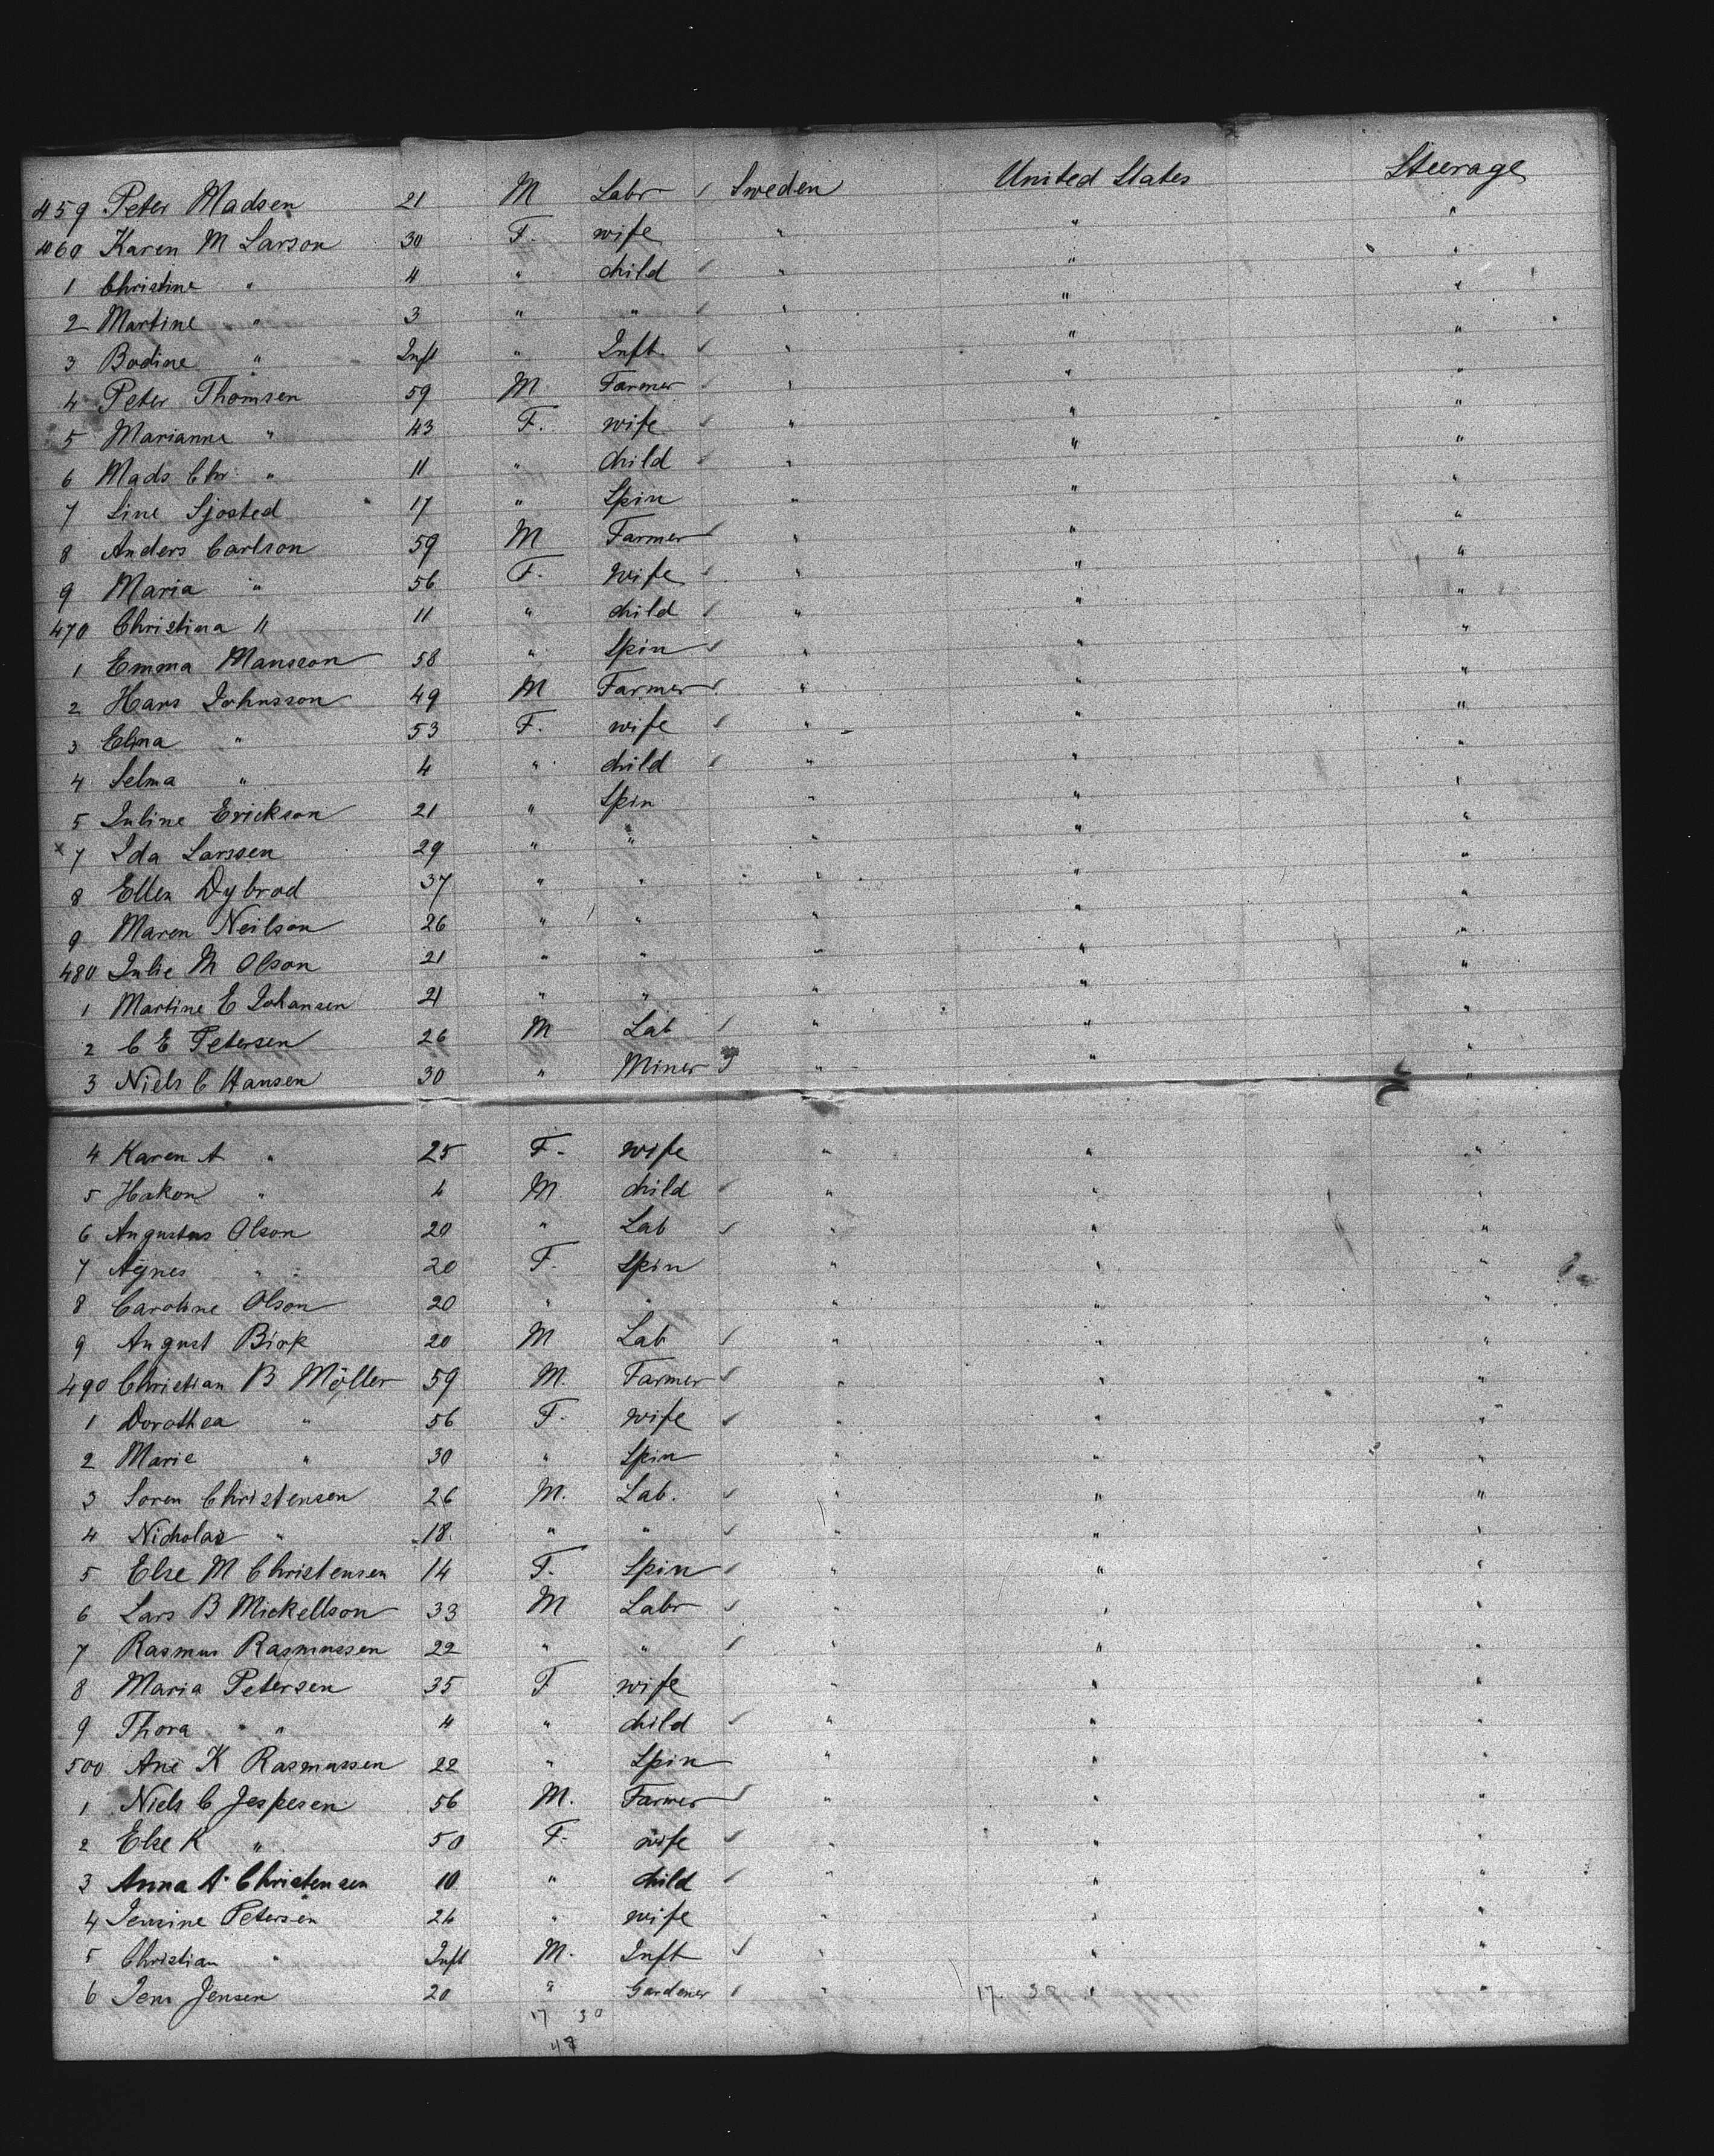 459 Peter Madsen 21 M Labr ✓ Sweden United States Steerage
460 Karen M Larson 30 F. wife " " "
1 Christine " 4 " child ✓ " " "
2 Martine " 3 " " ✓ " " "
3 Bodine " Inft " Inft. ✓ " " "
4 Peter Thomsen 59 M Farmer ✓ " " "
5 Marianne " 43 F. wife ✓ " " "
6 Mads Chr " 11 " child ✓ " " "
7 Line Sjosted 17 " Spin " " "
8 Anders Carlson 59 M Farmer ✓ " " "
9 Maria " 56 F. Wife ✓ " " "
470 Christina " 11 " child ✓ " " "
1 Emma Mansson 58 " Spin ✓ " " "
2 Hans Johnsson 49 M Farmer ✓ " " "
3 Elina " 53 F. wife ✓ " " "
4 Selma " 4 " child ✓ " " "
5 Juline Erickson 21 " Spin " " "
x 7 Ida Larssen 29 " " " " "
8 Ellen Dybrod 37 " " " " "
9 Maren Neilson 26 " " " " "
480 Julie M Olson 21 " " " " "
1 Martine E Johansen 21 " " " " "
2 C E Petersen 26 M Lab ✓ " " "
3 Niels C Hansen 30 " Miner " " "
4 Karen A " 25 F. wife " " "
5 Hakon " 4 M child ✓ " " "
6 Augustus Olson 20 " Lab ✓ " " "
7 Agnes " 20 F. Spin " " "
8 Caroline Olson 20 " " " " "
9 August Birk 20 M Lab ✓ " " "
490 Christian B Möller 59 M. Farmer ✓ " " "
1 Dorothea " 56 F. wife ✓ " " "
2 Marie " 30 " Spin " " "
3 Soren Christensen 26 M. Lab. ✓ " " "
4 Nicholas " 18 " " ✓ " " "
5 Else M Christensen 14 F. Spin ✓ " " "
6 Lars B Mickellson 33 M Labr ✓ " " "
7 Rasmus Rasmussen 22 " " ✓ " " "
8 Maria Petersen 35 F wife " " "
9 Thora " 4 " child ✓ " " "
500 Ane K Rasmussen 22 " Spin " " "
1 Niels C Jespesen 56 M. Farmer ✓ " " "
2 Else K " 50 F. wife ✓ " " "
3 Anna A Christensen 10 " child ✓ " " "
4 Jensine Petersen 26 " wife " " "
5 Christian " Inft M. Inft ✓ " " "
6 Jens Jensen 20 " Gardener ✓ " " "
17 30